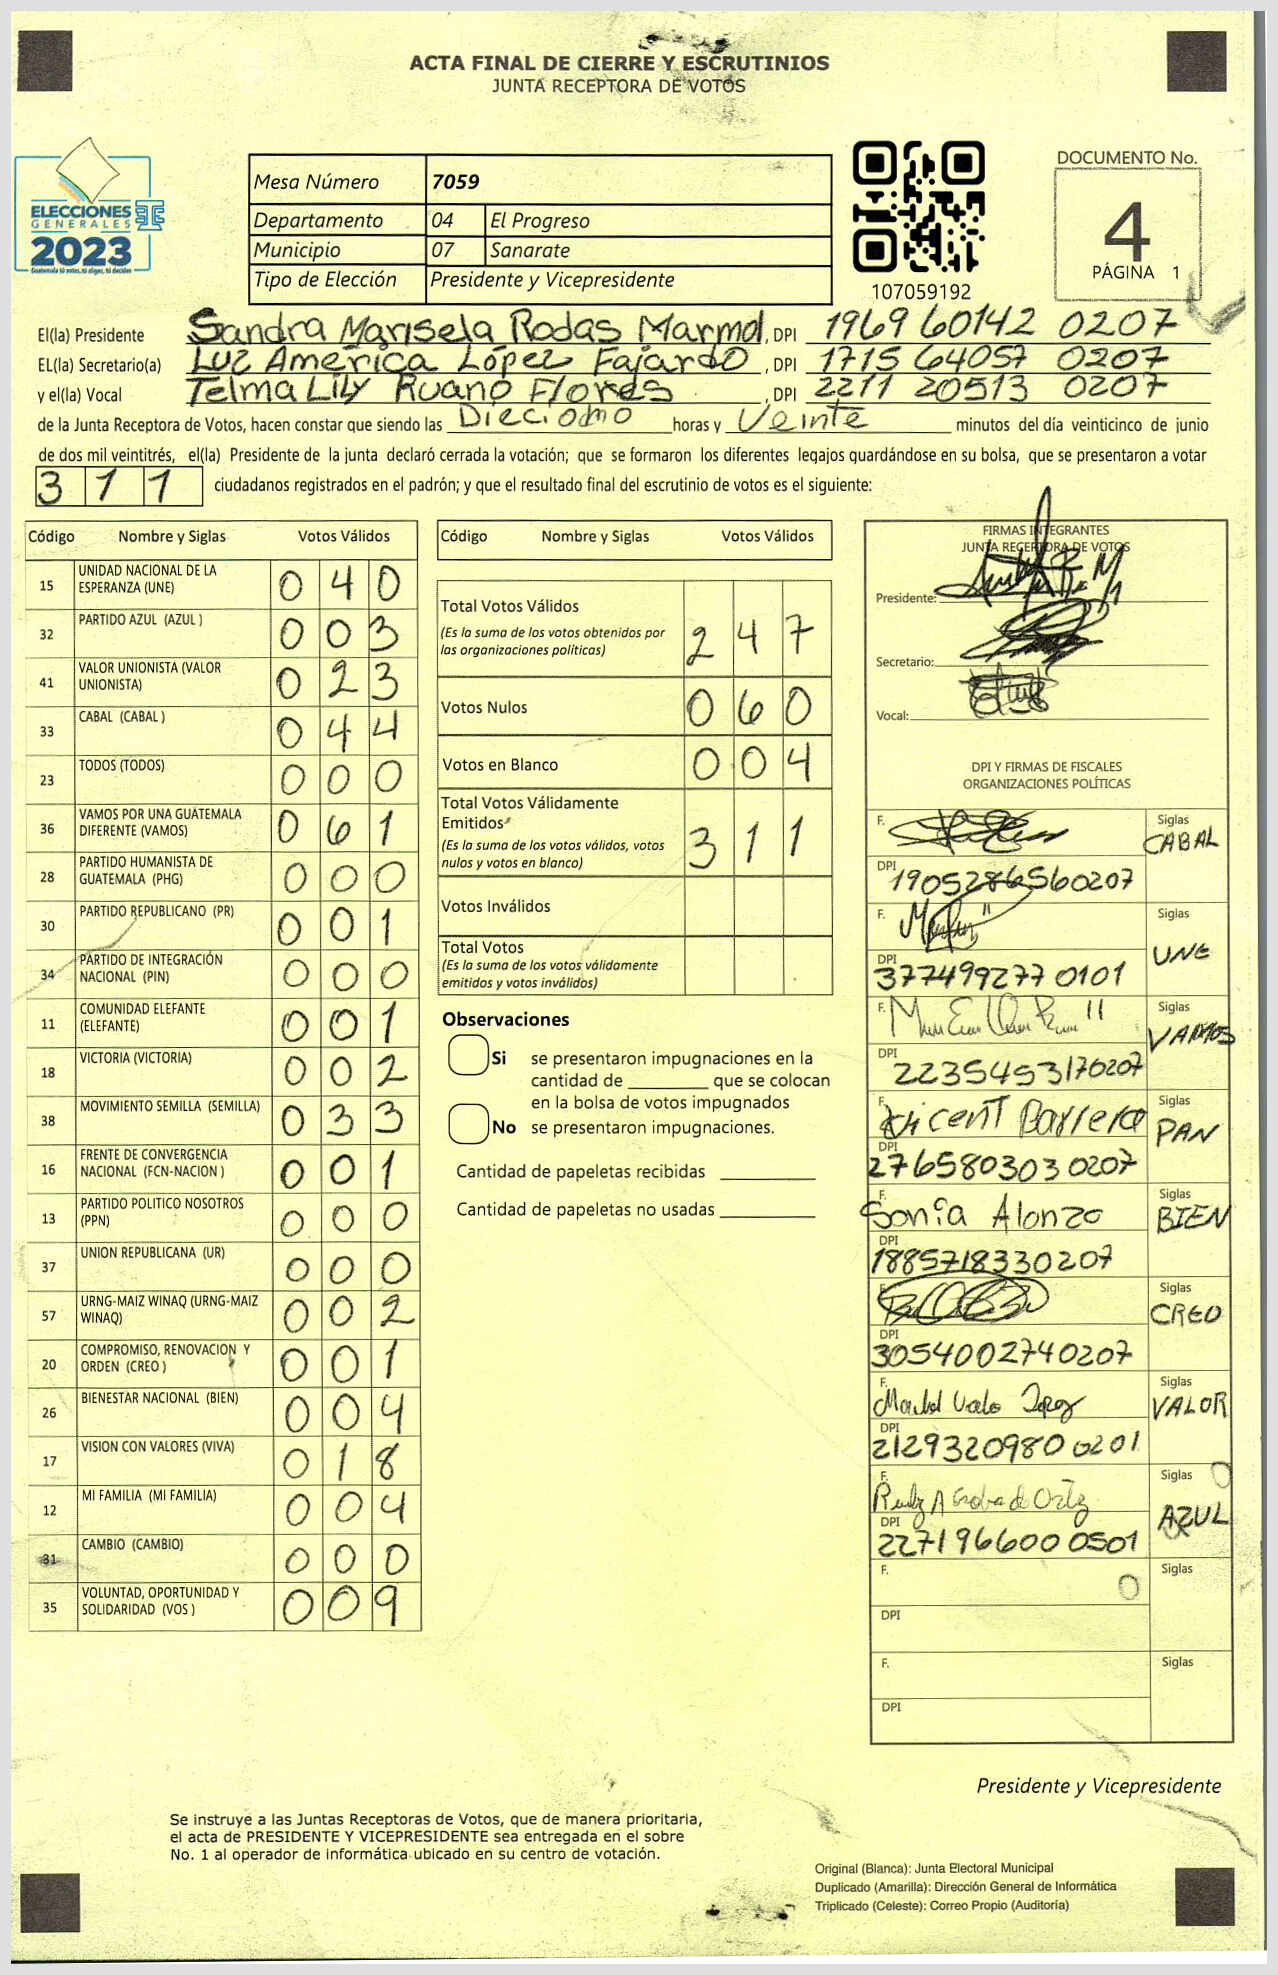 ACTA FINAL DE CIERRE Y ESCRUTINIOS
JUNTA RECEPTORA DE VOTOS
ELECCIONES
GENERALES
2023
Guatemala tú votas, tú eliges, tú decides
Mesa Número 7059
Departamento 04 El Progreso
Municipio 07 Sanarate
Tipo de Elección Presidente y Vicepresidente
107059192
DOCUMENTO No.
4
PÁGINA 1
El(la) Presidente Sandra Marisela Rodas Marmol, DPI 1969 60142 0207
EL(la) Secretario(a) Luz América López Fajardo, DPI 1715 64057 0207
y el(la) Vocal Telma Lily Ruano Flores, DPI 2211 20513 0207
de la Junta Receptora de Votos, hacen constar que siendo las Dieciomo horas y Veinte minutos del día veinticinco de junio
de dos mil veintitrés, el(la) Presidente de la junta declaró cerrada la votación; que se formaron los diferentes legajos guardándose en su bolsa, que se presentaron a votar
311 ciudadanos registrados en el padrón; y que el resultado final del escrutinio de votos es el siguiente:
Código Nombre y Siglas Votos Válidos
15 UNIDAD NACIONAL DE LA ESPERANZA (UNE) 040
32 PARTIDO AZUL (AZUL ) 003
41 VALOR UNIONISTA (VALOR UNIONISTA) 023
33 CABAL (CABAL ) 044
23 TODOS (TODOS) 000
36 VAMOS POR UNA GUATEMALA DIFERENTE (VAMOS) 061
28 PARTIDO HUMANISTA DE GUATEMALA (PHG) 000
30 PARTIDO REPUBLICANO (PR) 001
34 PARTIDO DE INTEGRACIÓN NACIONAL (PIN) 000
11 COMUNIDAD ELEFANTE (ELEFANTE) 001
18 VICTORIA (VICTORIA) 002
38 MOVIMIENTO SEMILLA (SEMILLA) 033
16 FRENTE DE CONVERGENCIA NACIONAL (FCN-NACION ) 001
13 PARTIDO POLITICO NOSOTROS (PPN) 000
37 UNION REPUBLICANA (UR) 000
57 URNG-MAIZ WINAQ (URNG-MAIZ WINAQ) 002
20 COMPROMISO, RENOVACION Y ORDEN (CREO ) 001
26 BIENESTAR NACIONAL (BIEN) 004
17 VISION CON VALORES (VIVA) 018
12 MI FAMILIA (MI FAMILIA) 004
31 CAMBIO (CAMBIO) 000
35 VOLUNTAD, OPORTUNIDAD Y SOLIDARIDAD (VOS ) 009
Código Nombre y Siglas Votos Válidos
Total Votos Válidos 247
(Es la suma de los votos obtenidos por
las organizaciones políticas)
Votos Nulos 060
Votos en Blanco 004
Total Votos Válidamente
Emitidos 311
(Es la suma de los votos válidos, votos
nulos y votos en blanco)
Votos Inválidos
Total Votos
(Es la suma de los votos válidamente
emitidos y votos inválidos)
Observaciones
Si se presentaron impugnaciones en la
cantidad de ________ que se colocan
en la bolsa de votos impugnados
No se presentaron impugnaciones.
Cantidad de papeletas recibidas
Cantidad de papeletas no usadas
FIRMAS INTEGRANTES
JUNTA RECEPTORA DE VOTOS
Presidente:
Secretario:
Vocal:
DPI Y FIRMAS DE FISCALES
ORGANIZACIONES POLÍTICAS
F. Siglas CABAL
DPI 1905286560207
F. Siglas UNE
DPI 377499277 0101
F. Siglas VAMOS
DPI 2235453170207
F. Vicent Barrera Siglas PAN
DPI 276580303 0207
F. Sonia Alonzo Siglas BIEN
DPI 1885718330207
F. Siglas CREO
DPI 3054002740207
F. Siglas VALOR
DPI 212932098 0 0201
F. Siglas AZUL
DPI 227196600 0501
F. Siglas
DPI
F. Siglas
DPI
Presidente y Vicepresidente
Se instruye a las Juntas Receptoras de Votos, que de manera prioritaria,
el acta de PRESIDENTE Y VICEPRESIDENTE sea entregada en el sobre
No. 1 al operador de informática ubicado en su centro de votación.
Original (Blanca): Junta Electoral Municipal
Duplicado (Amarilla): Dirección General de Informática
Triplicado (Celeste): Correo Propio (Auditoría)